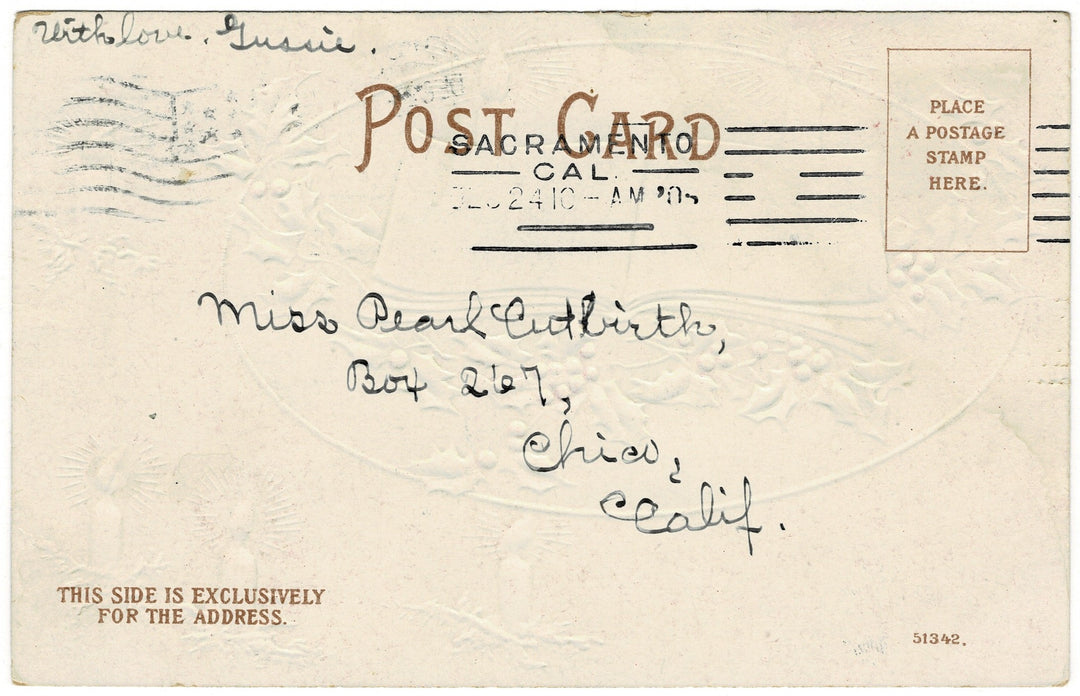 With love. Gussie.
POST CARD
SACRAMENTO
CAL.
DEC 24 10 - AM '0
PLACE
A POSTAGE
STAMP
HERE.
Miss Pearl Cutbirth,
Box 267,
Chico,
Calif.
THIS SIDE IS EXCLUSIVELY
FOR THE ADDRESS.
51342.